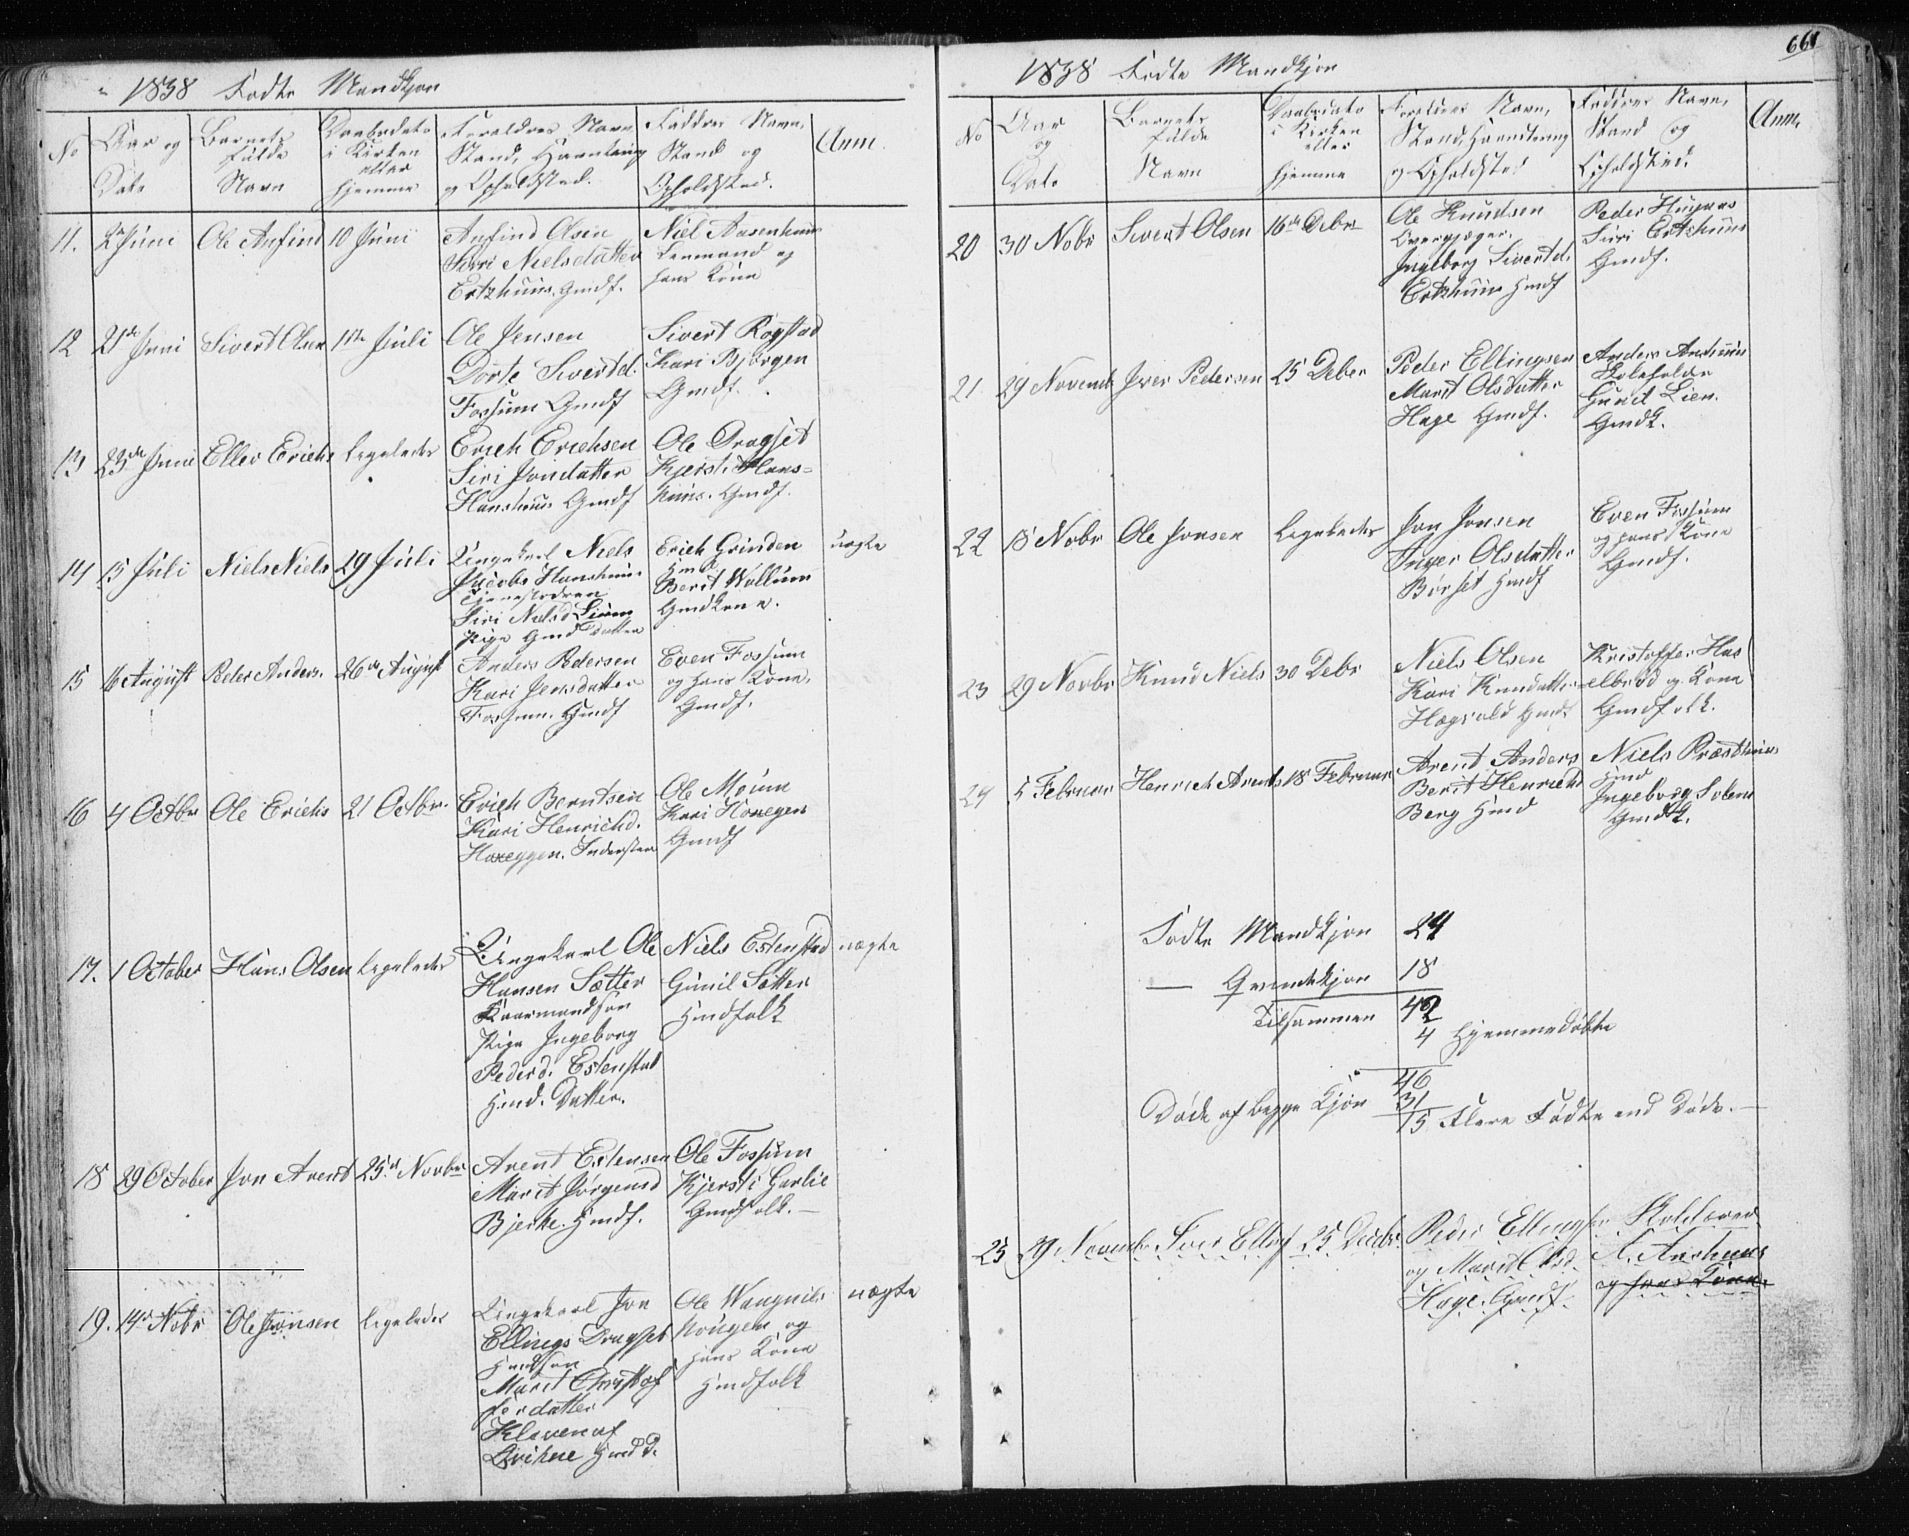 1838 Fødte Mandkjøn
No
Aar og
Date
Barnets
fulde
Navn
Daabsdato
i Kirken
eller
hjemme
Foreldres Navn
Stand, Haandtering
og Opholdsted.
Faddres Navn,
Stand og
Opholdsted.
Anm.
11. Juni Ole Anfind 10 Juni
Anfind Olsen
Siri Nielsdatter
Ertzhuus. Gmdf.
Niel Aasenhuus
Lenmand og
hans Kone
12 21de Juni Sivert Olsen 1ste Juli
Ole Jensen
Dorte Sivertd.
Fossum Gmdf
Sivert Rogstad
Kari Bjørgen
Gmdf.
13 23de Juni Ellev Erichs Ligeledes
Erich Erichsen
Siri Jonsdatter
Hanshuus Gmdf
Ole Dragset
Kjersti Hans-
huus. Gmdf.
14 15 Juli Niels Niels 29 Juli
Ungekarl Niels
Jacobs Hanshuus
Siri Nielsd
Pige Gmd Datter
Erich Grinden
Hmd
Berit Wollum
Gmdkone.
uægte
15 16 August Peder Anders. 26de August
Anders Pedersen
Kari Jensdatter
Fossum. Hmdf
Even Fossum
og hans Kone.
Gmdf.
16 4 Octbr Ole Erichs 21 Octbr.
Erich Berntsen
Kari Henrichd.
Hoxeggen. Inderster
Ole Moum
Kari Hoxegen
Gmdf
17. 1 October Hans Olsen Ligeledes
Ungekarl Ole
Hansen Sætter
Kaarmandsøn
Pige Ingeborg
Pederd. Estenstad
Hmd. Datter.
Niels Estenstad
Gunil Sætter
Hmdfolk
uægte
18 29 October Jon Arent 25de Novbr
Arent Estensen
Marit Jørgensd
Bjerke. Hmdf.
Ole Fossum
Kjersti Garlie
Gmdfolk.—
19. 14de Nobr Ole Jonsen Ligeledes
Ungekarl Jon
Ellings Dragset
Hmdsøn
Marit Christof
ferdatter
Kleven af
Qvikne Hmd D.
Ole Wangnils
hougen og
hans Kone
Hmdfolk
uægte
661
1838 Fødte Mandkjøn
No
Aar
og
Dato
Barnets
fulde
Navn
Daabsdato
i Kirken
eller
hjemme
Foreldres Navn,
Stand, Haandtering
og Opholdsted
Faddres Navn,
Stand og
Opholdsted.
Anm.
20 30 Nobr Sivert Olsen 16de Debr
Ole Knudsen
Overjæger.
Ingeborg Sivertd.
Ertzhuus Hmdf
Peder
Siri Ertzhuus
Gmdf.
21 29 Novemb Iver Pedersen 25 Deber
Peder Ellingsen
Marit Olsdatter
Hage Gmdf.
Anders
Skoleholder
Gunil Lien.
Gmdk.
22 18 Nobr Ole Jonsen Ligeledes
Jon Jonsen
Inger Olsdatter
Børset Hmdf
Even Fossum
og hans Kone
Gmdf.
23 29 Novbr Knud Niels 30 Debr
Niels Olsen
Kari Knudatter
Hægvold Hmdf.
Kristoffer Has
elbrod og Kone
Gmdfolk.
24 5 Februar Henrich Arents 18 Februar
Arent Anders
Berit Henrichs
Berg Hmd
Niels Præsthuus
Hmd
Ingeborg Solem
Gmdk.
Fødte Mandkjøn 24
— Qvindekjøn 18
Tilsammen 42
4 Hjemmedøbte
46
Døde af begge Kjøn 31
15 Flere Fødte end Døde.—
25 29 Novembr Iver Elling 25 Decbr.
Peder Ellingsen
og Marit Olsd.
Hage. Gmdf.
Skoleholder
A. Aashuus
og hans Kone.